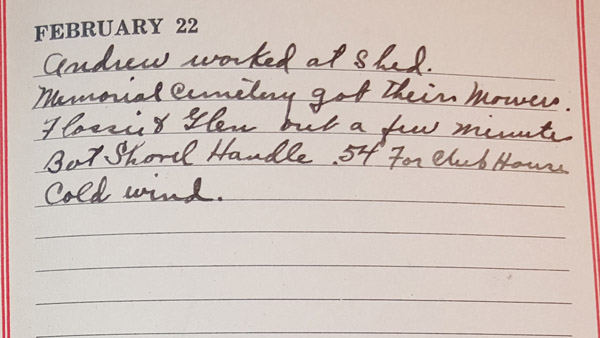 FEBRUARY 22
Andrew worked at Shed.
Memorial Cemetery got their Mowers.
Flossie & Glen out a few minute
Bot Shovel Handle .54 For Club House
Cold wind.